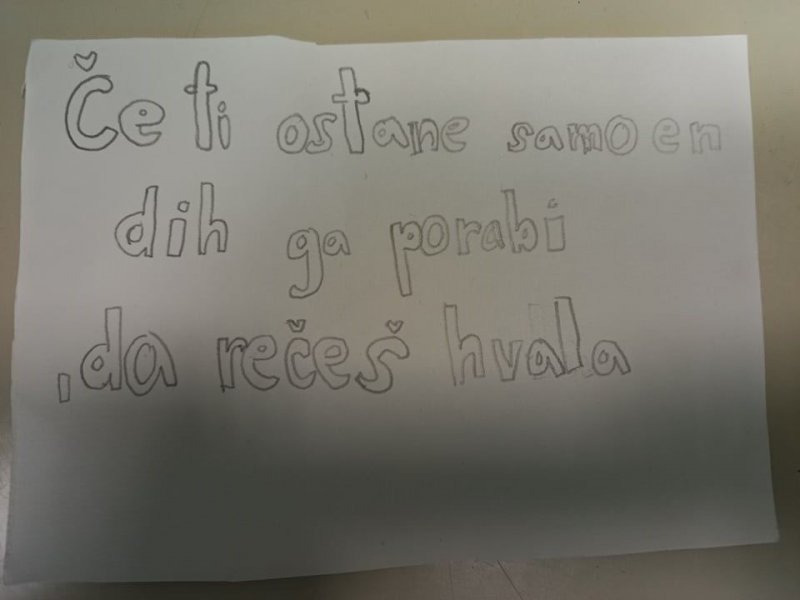 Če ti ostane samo en
dih ga porabi
,da rečeš hvala